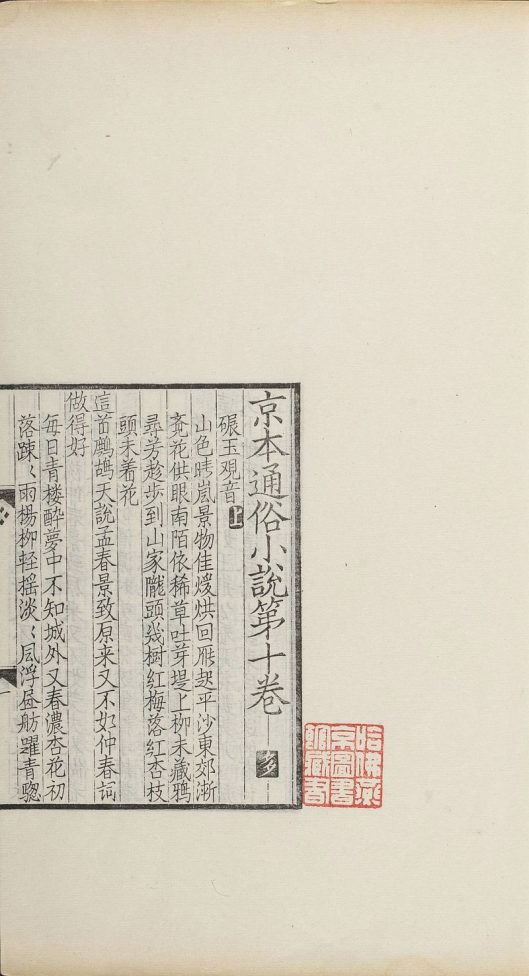 京本通俗小說第十卷
碾玉观音上
山色晴嵐景物佳煖烘回雁起平沙東郊漸
竟花供眼南陌依稀草吐芽堤上柳未藏鴉
尋芳趂步到山家隴頭幾樹紅梅落紅杏枝
頭未着花
這首鷓鴣天說孟春景致原来又不如仲春詞
做得好
每日青楼醉夢中不知城外又春濃杏花初
落踈〻雨楊柳輕揺淡〻風浮画舫躍青驄
哈佛燕
京圖書
館藏書